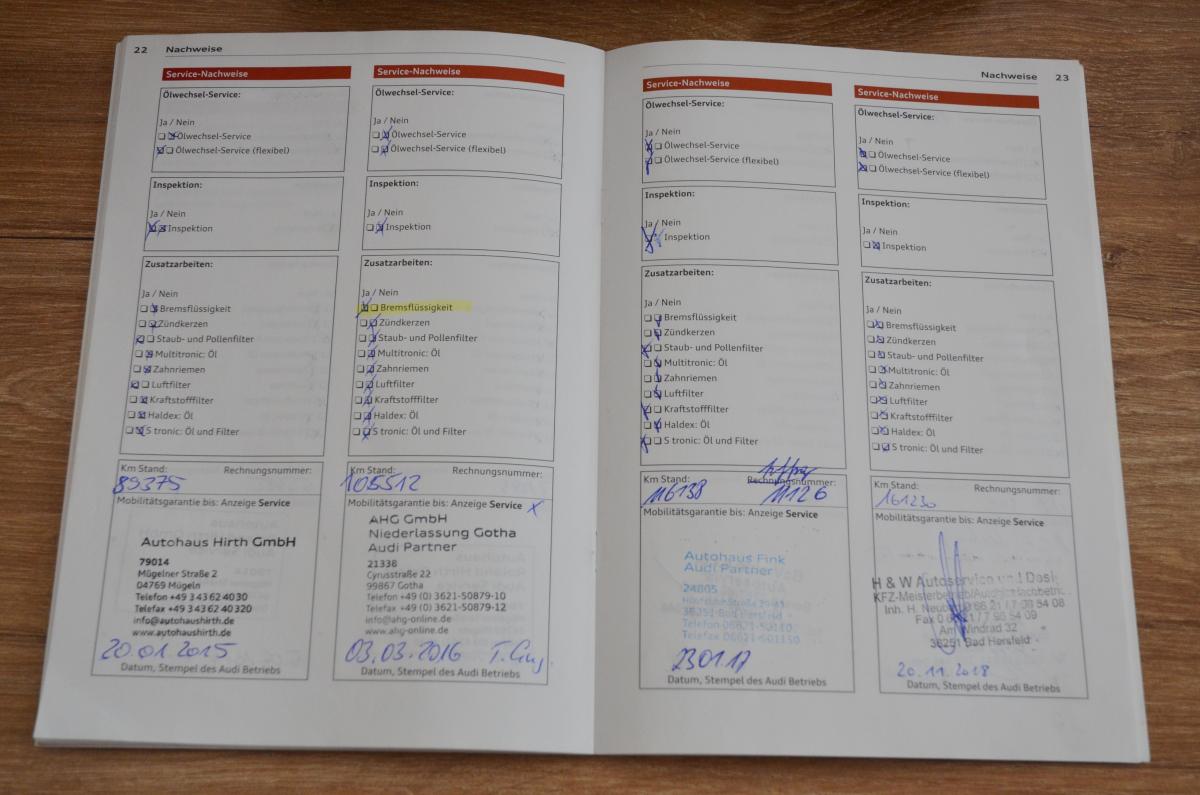 22 Nachweise
Service-Nachweise
Ölwechsel-Service:
Ja / Nein
Ölwechsel-Service
Ölwechsel-Service (flexibel)
Inspektion:
Ja / Nein
Inspektion
Zusatzarbeiten:
Ja / Nein
Bremsflüssigkeit
Zündkerzen
Staub- und Pollenfilter
Multitronic: Öl
Zahnriemen
Luftfilter
Kraftstofffilter
Haldex: Öl
S tronic: Öl und Filter
Km Stand: Rechnungsnummer:
89375
Mobilitätsgarantie bis: Anzeige Service
Autohaus Hirth GmbH
79014
Mügelner Straße 2
04769 Mügeln
Telefon +49 3 43 62 40 30
Telefax +49 3 43 62 40 320
info@autohaushirth.de
www.autohaushirth.de
20.01.2015
Datum, Stempel des Audi Betriebs
Service-Nachweise
Ölwechsel-Service:
Ja / Nein
Ölwechsel-Service
Ölwechsel-Service (flexibel)
Inspektion:
Ja / Nein
Inspektion
Zusatzarbeiten:
Ja / Nein
Bremsflüssigkeit
Zündkerzen
Staub- und Pollenfilter
Multitronic: Öl
Zahnriemen
Luftfilter
Kraftstofffilter
Haldex: Öl
S tronic: Öl und Filter
Km Stand: Rechnungsnummer:
105512
Mobilitätsgarantie bis: Anzeige Service x
AHG GmbH
Niederlassung Gotha
Audi Partner
21338
Cyrusstraße 22
99867 Gotha
Telefon +49 (0) 3621-50879-10
Telefax +49 (0) 3621-50879-12
info@ahg-online.de
www.ahg-online.de
03.03.2016
Datum, Stempel des Audi Betriebs
Nachweise 23
Service-Nachweise
Ölwechsel-Service:
Ja / Nein
Ölwechsel-Service
Ölwechsel-Service (flexibel)
Inspektion:
Ja / Nein
Inspektion
Zusatzarbeiten:
Ja / Nein
Bremsflüssigkeit
Zündkerzen
Staub- und Pollenfilter
Multitronic: Öl
Zahnriemen
Luftfilter
Kraftstofffilter
Haldex: Öl
S tronic: Öl und Filter
Km Stand: Rechnungsnummer:
116138 11126
Mobilitätsgarantie bis: Anzeige Service
Autohaus Fink
Audi Partner
24805
36251 Bad Hersfeld
Telefon 06621-50160
Telefax 06621-501150
23 01 17
Datum, Stempel des Audi Betriebs
Service-Nachweise
Ölwechsel-Service:
Ja / Nein
Ölwechsel-Service
Ölwechsel-Service (flexibel)
Inspektion:
Ja / Nein
Inspektion
Zusatzarbeiten:
Ja / Nein
Bremsflüssigkeit
Zündkerzen
Staub- und Pollenfilter
Multitronic: Öl
Zahnriemen
Luftfilter
Kraftstofffilter
Haldex: Öl
S tronic: Öl und Filter
Km Stand: Rechnungsnummer:
161230
Mobilitätsgarantie bis: Anzeige Service
H & W Autoservice und Desi
KFZ-Meisterbetrieb
Inh. H.
Am Windrad 32
36251 Bad Hersfeld
20.11.2018
Datum, Stempel des Audi Betriebs